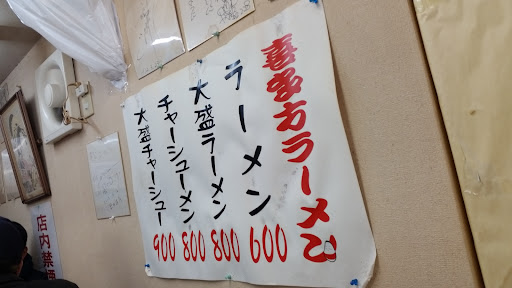 喜多方ラーメン
ラーメン 600
大盛ラーメン 800
チャーシューメン 800
大盛チャーシュー 900
店内禁